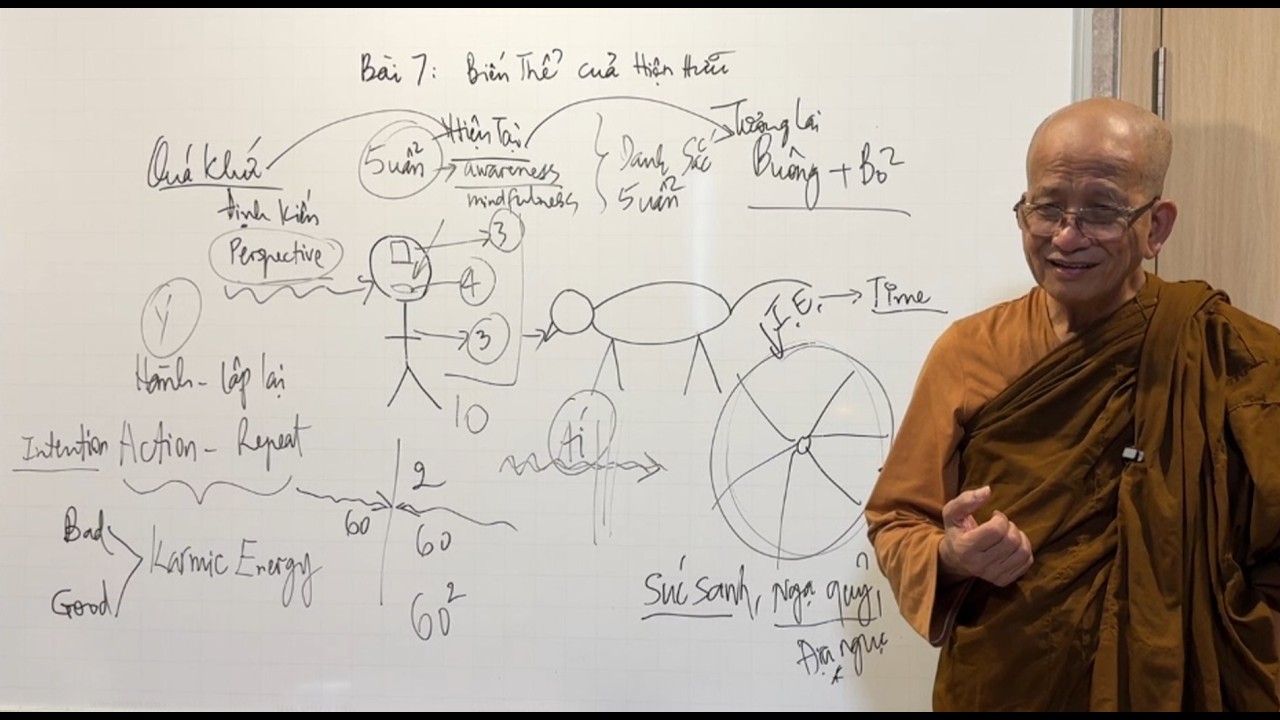 Bài 7: Biến Thể của Hiện Hữu
Quá Khứ
5 uẩn
Hiện Tại
awareness
mindfulness
Danh Sắc
5 uẩn
Tưởng Lai
Buông + Bỏ
Định Kiến
Perspective
3
4
3
10
Ý
Hành - lập lại
Intention Action - Repeat
Bad
Good
Karmic Energy
2
60
60
60²
Ái
I.E. → Time
Súc sanh, Ngạ quỷ,
Địa ngục